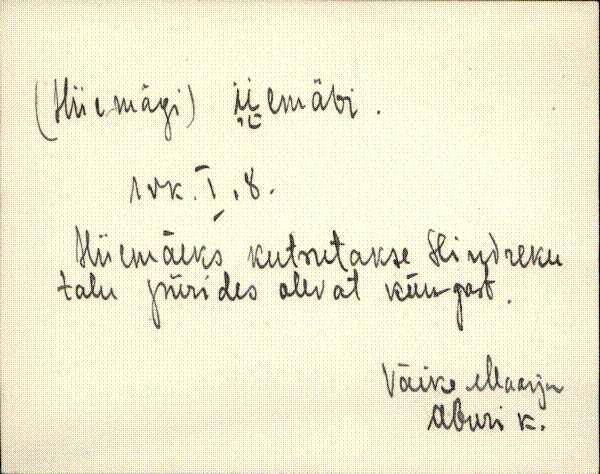 (Hiiemägi) iiemäbi.
1 vk. I, 8.
Hiiemäeks kutsutakse Hindreku
talu piirides olevat küngast.
Väike Maarja
Aburi k.